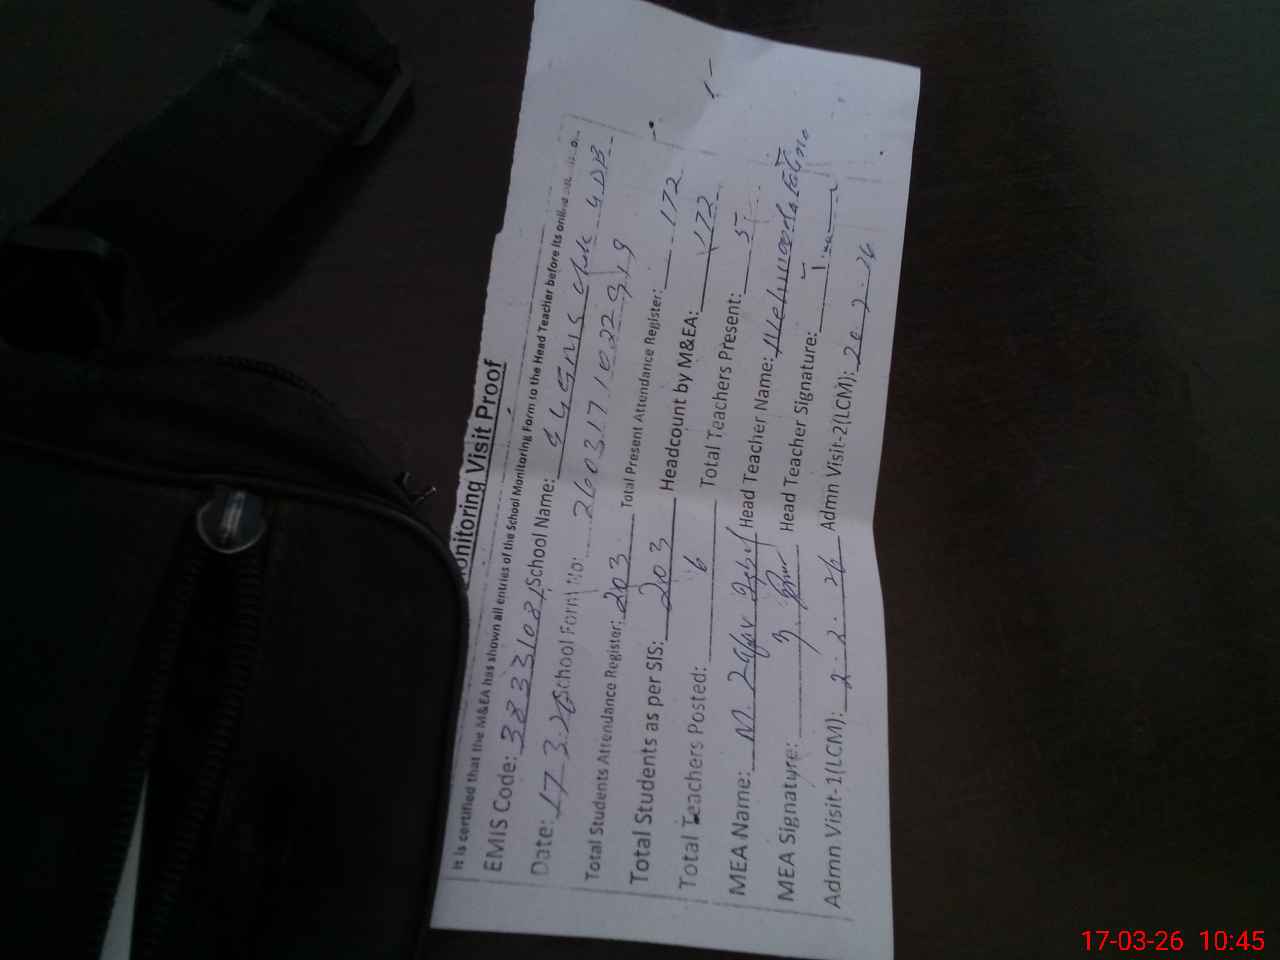 onitoring Visit Proof
It is certified that the M&EA has shown all entries of the School Monitoring Form to the Head Teacher before its online
EMIS Code: 38331081 School Name: GMS 4 DB
Date: 17 3.26 School Form No: 260317102
Total Students Attendance Register: 203 Total Present Attendance Register: 172
Total Students as per SIS: 203 Headcount by M&EA: 172
Total Teachers Posted: 6 Total Teachers Present: 5
MEA Name: M. Head Teacher Name:
MEA Signature: Head Teacher Signature:
Admn Visit-1(LCM): 2. 2. 26 Admn Visit-2(LCM): 20. 2. 26
17-03-26 10:45